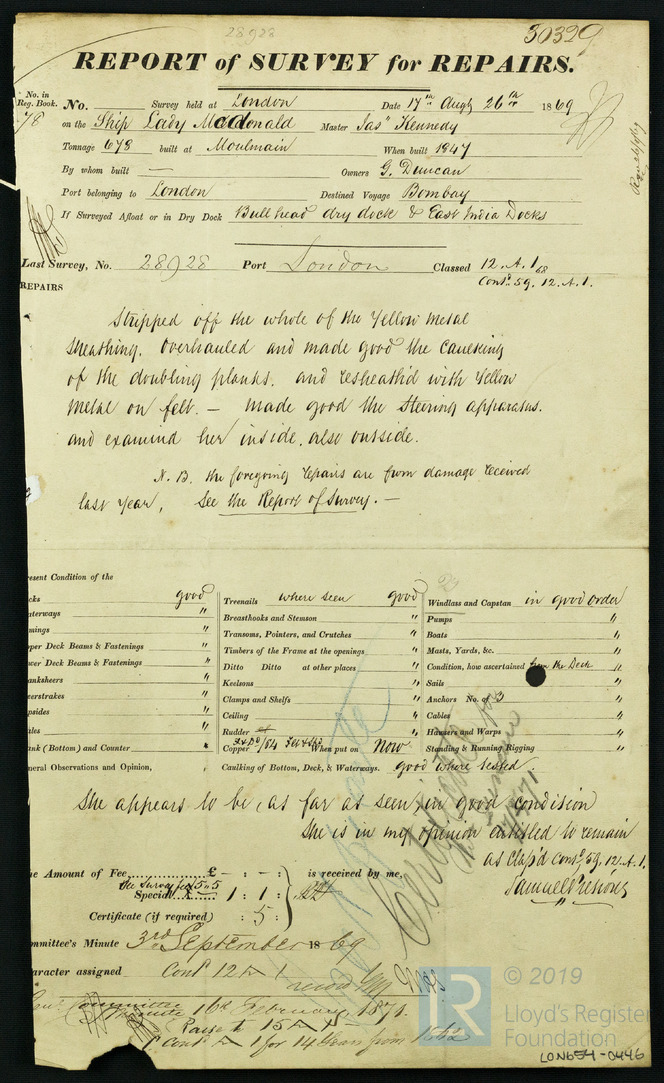 28928
30329
REPORT of SURVEY for REPAIRS.
No. in
Reg. Book.
78
No. Survey held at London Date 17th Augt 26th 1869
on the Ship Lady Macdonald Master Jas" Kennedy
Tonnage 678 built at Moulmain When built 1847
By whom built — Owners G. Duncan
Port belonging to London Destined Voyage Bombay
If Surveyed Afloat or in Dry Dock Bull head dry dock & East India Docks
Last Survey, No. 28928 Port London Classed 12. A. 1. 68
Contd. 59. 12. A. 1.
REPAIRS
Stripped off the whole of the Yellow Metal
Sheathing. Overhauled and made good the Caulking
of the doubling planks. and resheath'd with Yellow
Metal on felt. — Made good the Steering apparatus.
and examind her inside. also outside.
N. B. the foregoing repairs are from damage received
last Year, See the Report of Survey. —
resent Condition of the
cks good
aterways "
mings "
pper Deck Beams & Fastenings "
wer Deck Beams & Fastenings "
anksheers "
erstrakes "
psides "
ales "
ank (Bottom) and Counter "
neral Observations and Opinion,
Treenails where seen good
Breasthooks and Stemson "
Transoms, Pointers, and Crutches "
Timbers of the Frame at the openings "
Ditto Ditto at other places "
Keelsons "
Clamps and Shelfs "
Ceiling "
Rudder "
Copper When put on Now
Caulking of Bottom, Deck, & Waterways. good where tested.
Windlass and Capstan in good order
Pumps "
Boats "
Masts, Yards, &c. "
Condition, how ascertained from the Deck "
Sails "
Anchors No. of 3 "
Cables "
Hawsers and Warps "
Standing & Running Rigging "
She appears to be, as far as seen, in good condition
She is in my opinion entitled to remain
as Class'd Contd. 59. 12. A. 1.
he Amount of Fee £ - : - : - is received by me,
Survey fee 5 " 5
Special £ 1 : 1 :
Certificate (if required) : 5 :
ommittee's Minute 3rd September 1869
aracter assigned Contd 12 A 1
Committee Minute 16th February 1871.
Raise to 15 A
Contd A 1 for 14 Years from 1862
© 2019
LR
Lloyd's Register
Foundation
LON654-0446